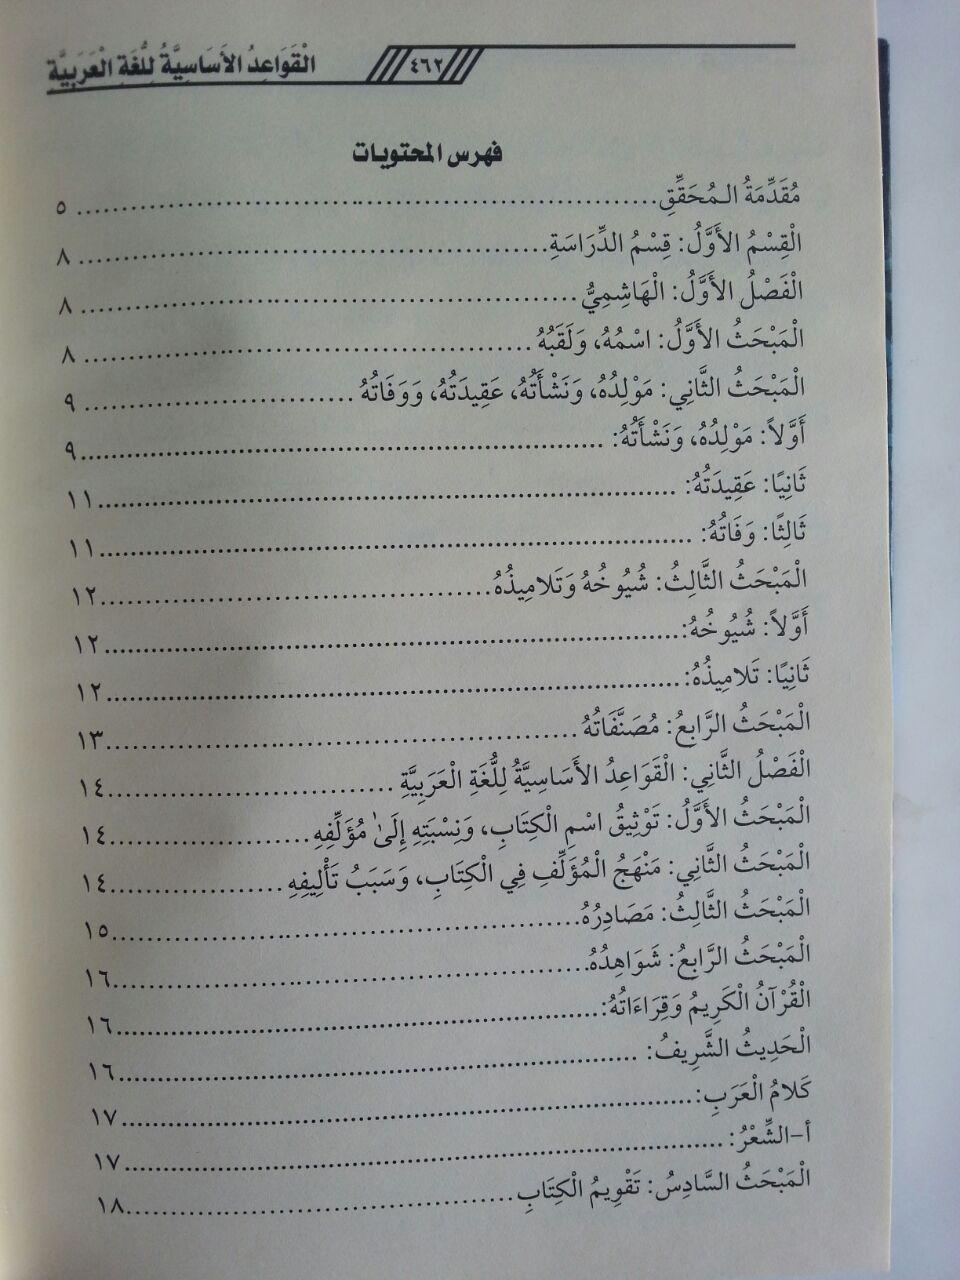 الْقَوَاعِدُ الأَسَاسِيَّةُ لِلُّغَةِ الْعَرَبِيَّةِ ٤٦٢
فهرس المحتويات
مُقَدِّمَةُ الـمُحَقِّقِ ٥
الْقِسْمُ الأَوَّلُ: قِسْمُ الدِّرَاسَةِ ٨
الْفَصْلُ الأَوَّلُ: الْهَاشِمِيُّ ٨
الْمَبْحَثُ الأَوَّلُ: اسْمُهُ، وَلَقَبُهُ ٨
الْمَبْحَثُ الثَّانِي: مَوْلِدُهُ، وَنَشْأَتُهُ، عَقِيدَتُهُ، وَوَفَاتُهُ ٩
أَوَّلاً: مَوْلِدُهُ، وَنَشْأَتُهُ: ٩
ثَانِيًا: عَقِيدَتُهُ: ١١
ثَالِثًا: وَفَاتُهُ: ١١
الْمَبْحَثُ الثَّالِثُ: شُيُوخُهُ وَتَلامِيذُهُ ١٢
أَوَّلاً: شُيُوخُهُ: ١٢
ثَانِيًا: تَلامِيذُهُ: ١٢
الْمَبْحَثُ الرَّابِعُ: مُصَنَّفَاتُهُ ١٣
الْفَصْلُ الثَّانِي: الْقَوَاعِدُ الأَسَاسِيَّةُ لِلُّغَةِ الْعَرَبِيَّةِ ١٤
الْمَبْحَثُ الأَوَّلُ: تَوْثِيقُ اسْمِ الْكِتَابِ، وَنِسْبَتِهِ إِلَىٰ مُؤَلِّفِهِ ١٤
الْمَبْحَثُ الثَّانِي: مَنْهَجُ الْمُؤَلِّفِ فِي الْكِتَابِ، وَسَبَبُ تَأْلِيفِهِ ١٤
الْمَبْحَثُ الثَّالِثُ: مَصَادِرُهُ ١٥
الْمَبْحَثُ الرَّابِعُ: شَوَاهِدُهُ ١٦
الْقُرْآنُ الْكَرِيمُ وَقِرَاءَاتُهُ: ١٦
الْحَدِيثُ الشَّرِيفُ: ١٦
كَلامُ الْعَرَبِ: ١٧
أ-الشِّعْرُ: ١٧
الْمَبْحَثُ السَّادِسُ: تَقْوِيمُ الْكِتَابِ ١٨